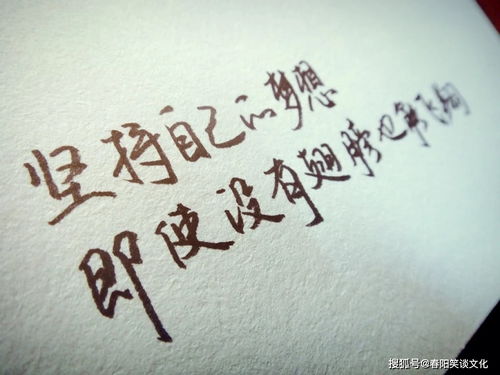 坚持自己的梦想
即使没有翅膀也能飞翔
搜狐号@春阳笑谈文化